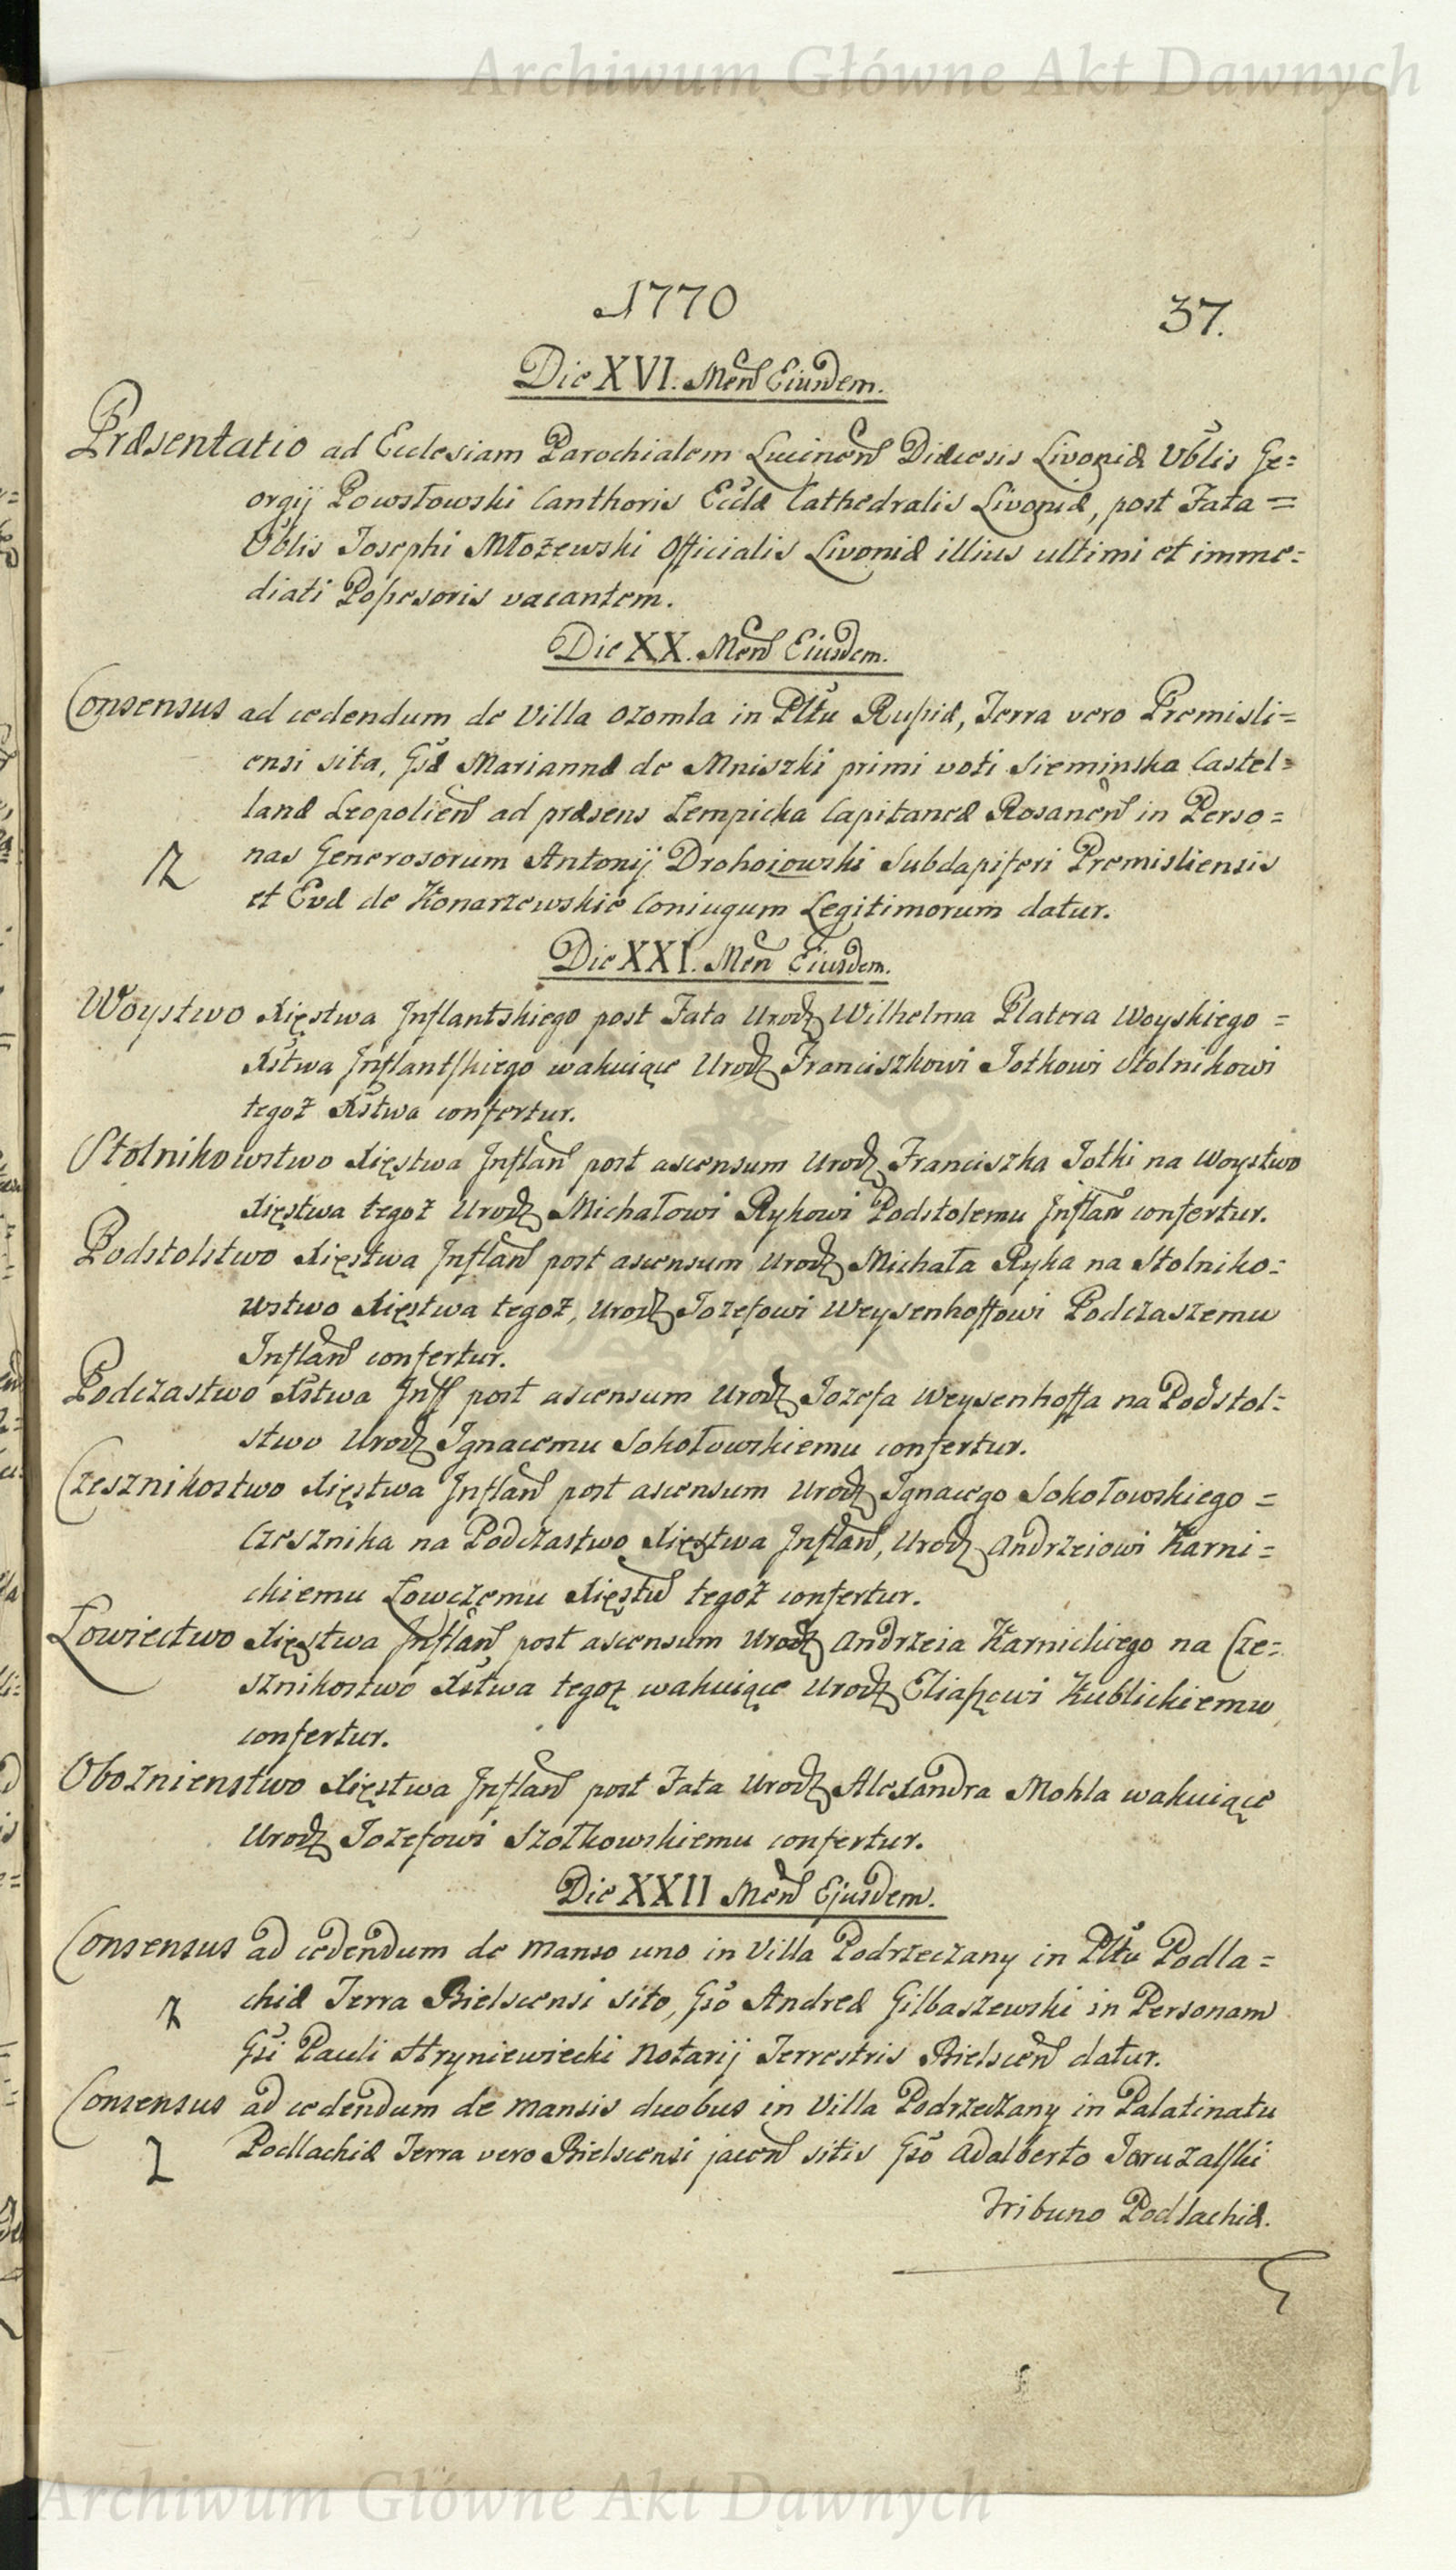 Archiwum Główne Akt Dawnych
1770
37.
Die XVI. Men̄ Eiusdem.
Præsentatio ad Ecclesiam Parochialem Lucinen̄ Diæcesis Livoniæ Vb̄lis Ge=
orgij Powstowski Canthoris Eccłæ Cathedralis Livoniæ, post Fata =
Vb̄lis Josephi Młożewski Officialis Livoniæ illius ultimi et imme=
diati Possesoris vacantem.
Die XX. Men̄ Eiusdem.
Consensus ad cedendum de Villa Ozomla in Płtu Russiæ, Terra vero Premisli=
ensi sita, Gsæ Mariannæ de Mniszki primi voti Sieminska Castel=
lanæ Leopolien̄ ad præsens Łempicka Capitaneæ Rosanen̄ in Perso=
nas Generosorum Antonij Drohoiowski Subdapiferi Premisliensis
et Evæ de Konarzewskie Coniugum Legitimorum datur.
Die XXI. Men̄ Eiusdem.
Woystwo Xięstwa Inflantskiego post Fata Urodz Wilhelma Platera Woyskiego =
Xstwa Inflantskiego wakuiące Urodz Franciszkowi Jotkowi Stolnikowi
tegoż Xstwa confertur.
Stolnikowstwo Xięstwa Inflan̄ post ascensum Urodz Franciszka Jotki na Woystwo
Xięstwa tegoż Urodz Michałowi Rykowi Podstolemu Inflan̄ confertur.
Podstolstwo Xięstwa Inflan̄ post ascensum Urodz Michała Ryka na Stolniko=
wstwo Xięstwa tegoż, Urodz Jozefowi Weysenhoffowi Podczaszemu
Inflan̄ confertur.
Podczastwo Xstwa Infl post ascensum Urodz Jozefa Weysenhoffa na Podstol=
stwo Urodz Ignacemu Sokołowskiemu confertur.
Czesznikostwo Xięstwa Inflan̄ post ascensum Urodz Ignacego Sokołowskiego =
Czesznika na Podczastwo Xięstwa Inflan̄, Urodz Andrzeiowi Karni=
ckiemu Łowczemu Xięstw̄ tegoż confertur.
Łowiectwo Xięstwa Inflan̄ post ascensum Urodz Andrzeia Karnickiego na Cze=
sznikostwo Xstwa tegoż wakuiące Urodz Eliaszowi Kublickiemu
confertur.
Oboznienstwo Xięstwa Inflan̄ post Fata Urodz Alexandra Mohla wakuiące
Urodz Jozefowi Szołkowskiemu confertur.
Die XXII Men̄ Ejusdem.
Consensus ad cedendum de manso uno in Villa Podrzeczany in Płtu Podla=
chiæ Terra Bielscensi sito, Gso Andreæ Gilbaszewski in Personam
Gsi Pauli Hryniewiecki Notarij Terrestris Bielscen̄ datur.
Consensus ad cedendum de mansis duobus in Villa Podrzeczany in Palatinatu
Podlachiæ Terra vero Bielscensi jacen̄ sitis Gso Adalberto Jaruzalski
Tribuno Podlachiæ.
Archiwum Główne Akt Dawnych